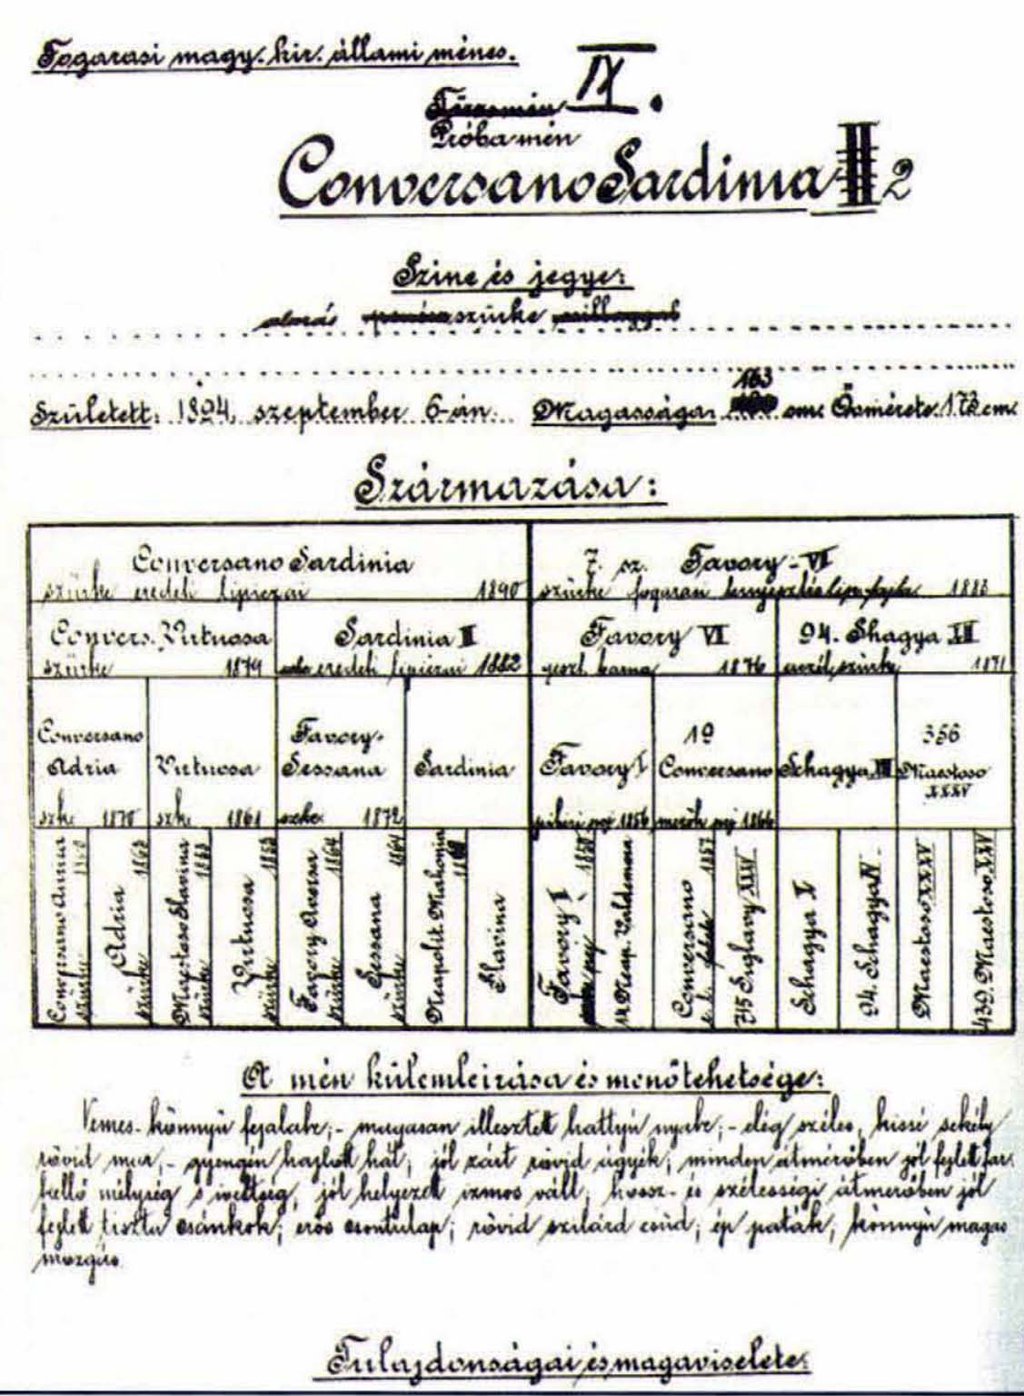 Fogarasi magy. kir. állami ménes.
IX.
Törzsmén
Próbamén
Conversano Sardinia II 2
Szine és jegye:
almás szürke csillaggal
Született: 1894. szeptember 6-án. Magassága: 163 cm. Övmérete: 173 cm.
Származása:
Conversano Sardinia
szürke eredeti lipiczai 1890
7. sz. Favory-VI
szürke fogarasi tenyésztés lip. fajta 1883
Convers. Virtuosa
szürke 1879
Sardinia II
eredeti lipiczai 1882
Favory VI
pest. barna 1876
94. Shagya XII
szürke 1871
Conversano Adria
szke 1870
Virtuosa
szke 1861
Favory-Sessana
szke 1872
Sardinia
Favory I
pej 1856
19 Conversano
pej 1866
Schagya XII
356 Maestoso XXXV
Conversano Annia
szürke
Adria 1863
szürke
Maestoso Slavina 1853
szürke
Virtuosa 1853
szürke
Favory Aversa 1864
szürke
Sessana 1864
szürke
Neapolit. Mahonia
Slavina
Favory I 1850
14. Neap. Valdemora
Conversano 1857
fekete
715 Siglavy XXV
Schagya X
94. Schagya IV
Maestoso XXXV
439. Maestoso XXV
A mén külemleirása és menőtehetsége:
Nemes-könnyü fejalak; - magasan illesztett hattyú nyak; - elég széles, kissé sekély
rövid mar, - gyengén hajlott hát, jól zárt rövid ágyék; minden átmérőben jól fejlett far.
kellő mélység s iveltség, jól helyezett izmos váll; hossz- és szélességi átmerőben jól
fejlett tiszta csánkok; erős csontalap; rövid szilárd csüd; ép paták; könnyü magas
mozgás.
Tulajdonságai és magaviselete: